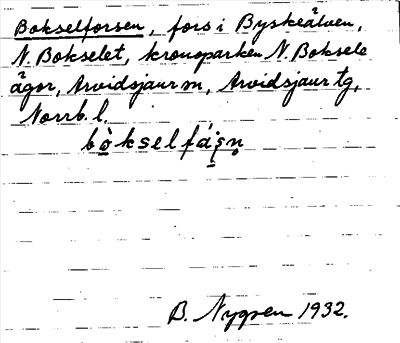 Bokselforsen, fors i Byskeälven,
N. Bokselet, kronoparken N. Boksele
ägor, Arvidsjaur sn, Arvidsjaur tg,
Norrb. l.
bo̱kselfá̱ṣṇ
B. Nygren 1932.